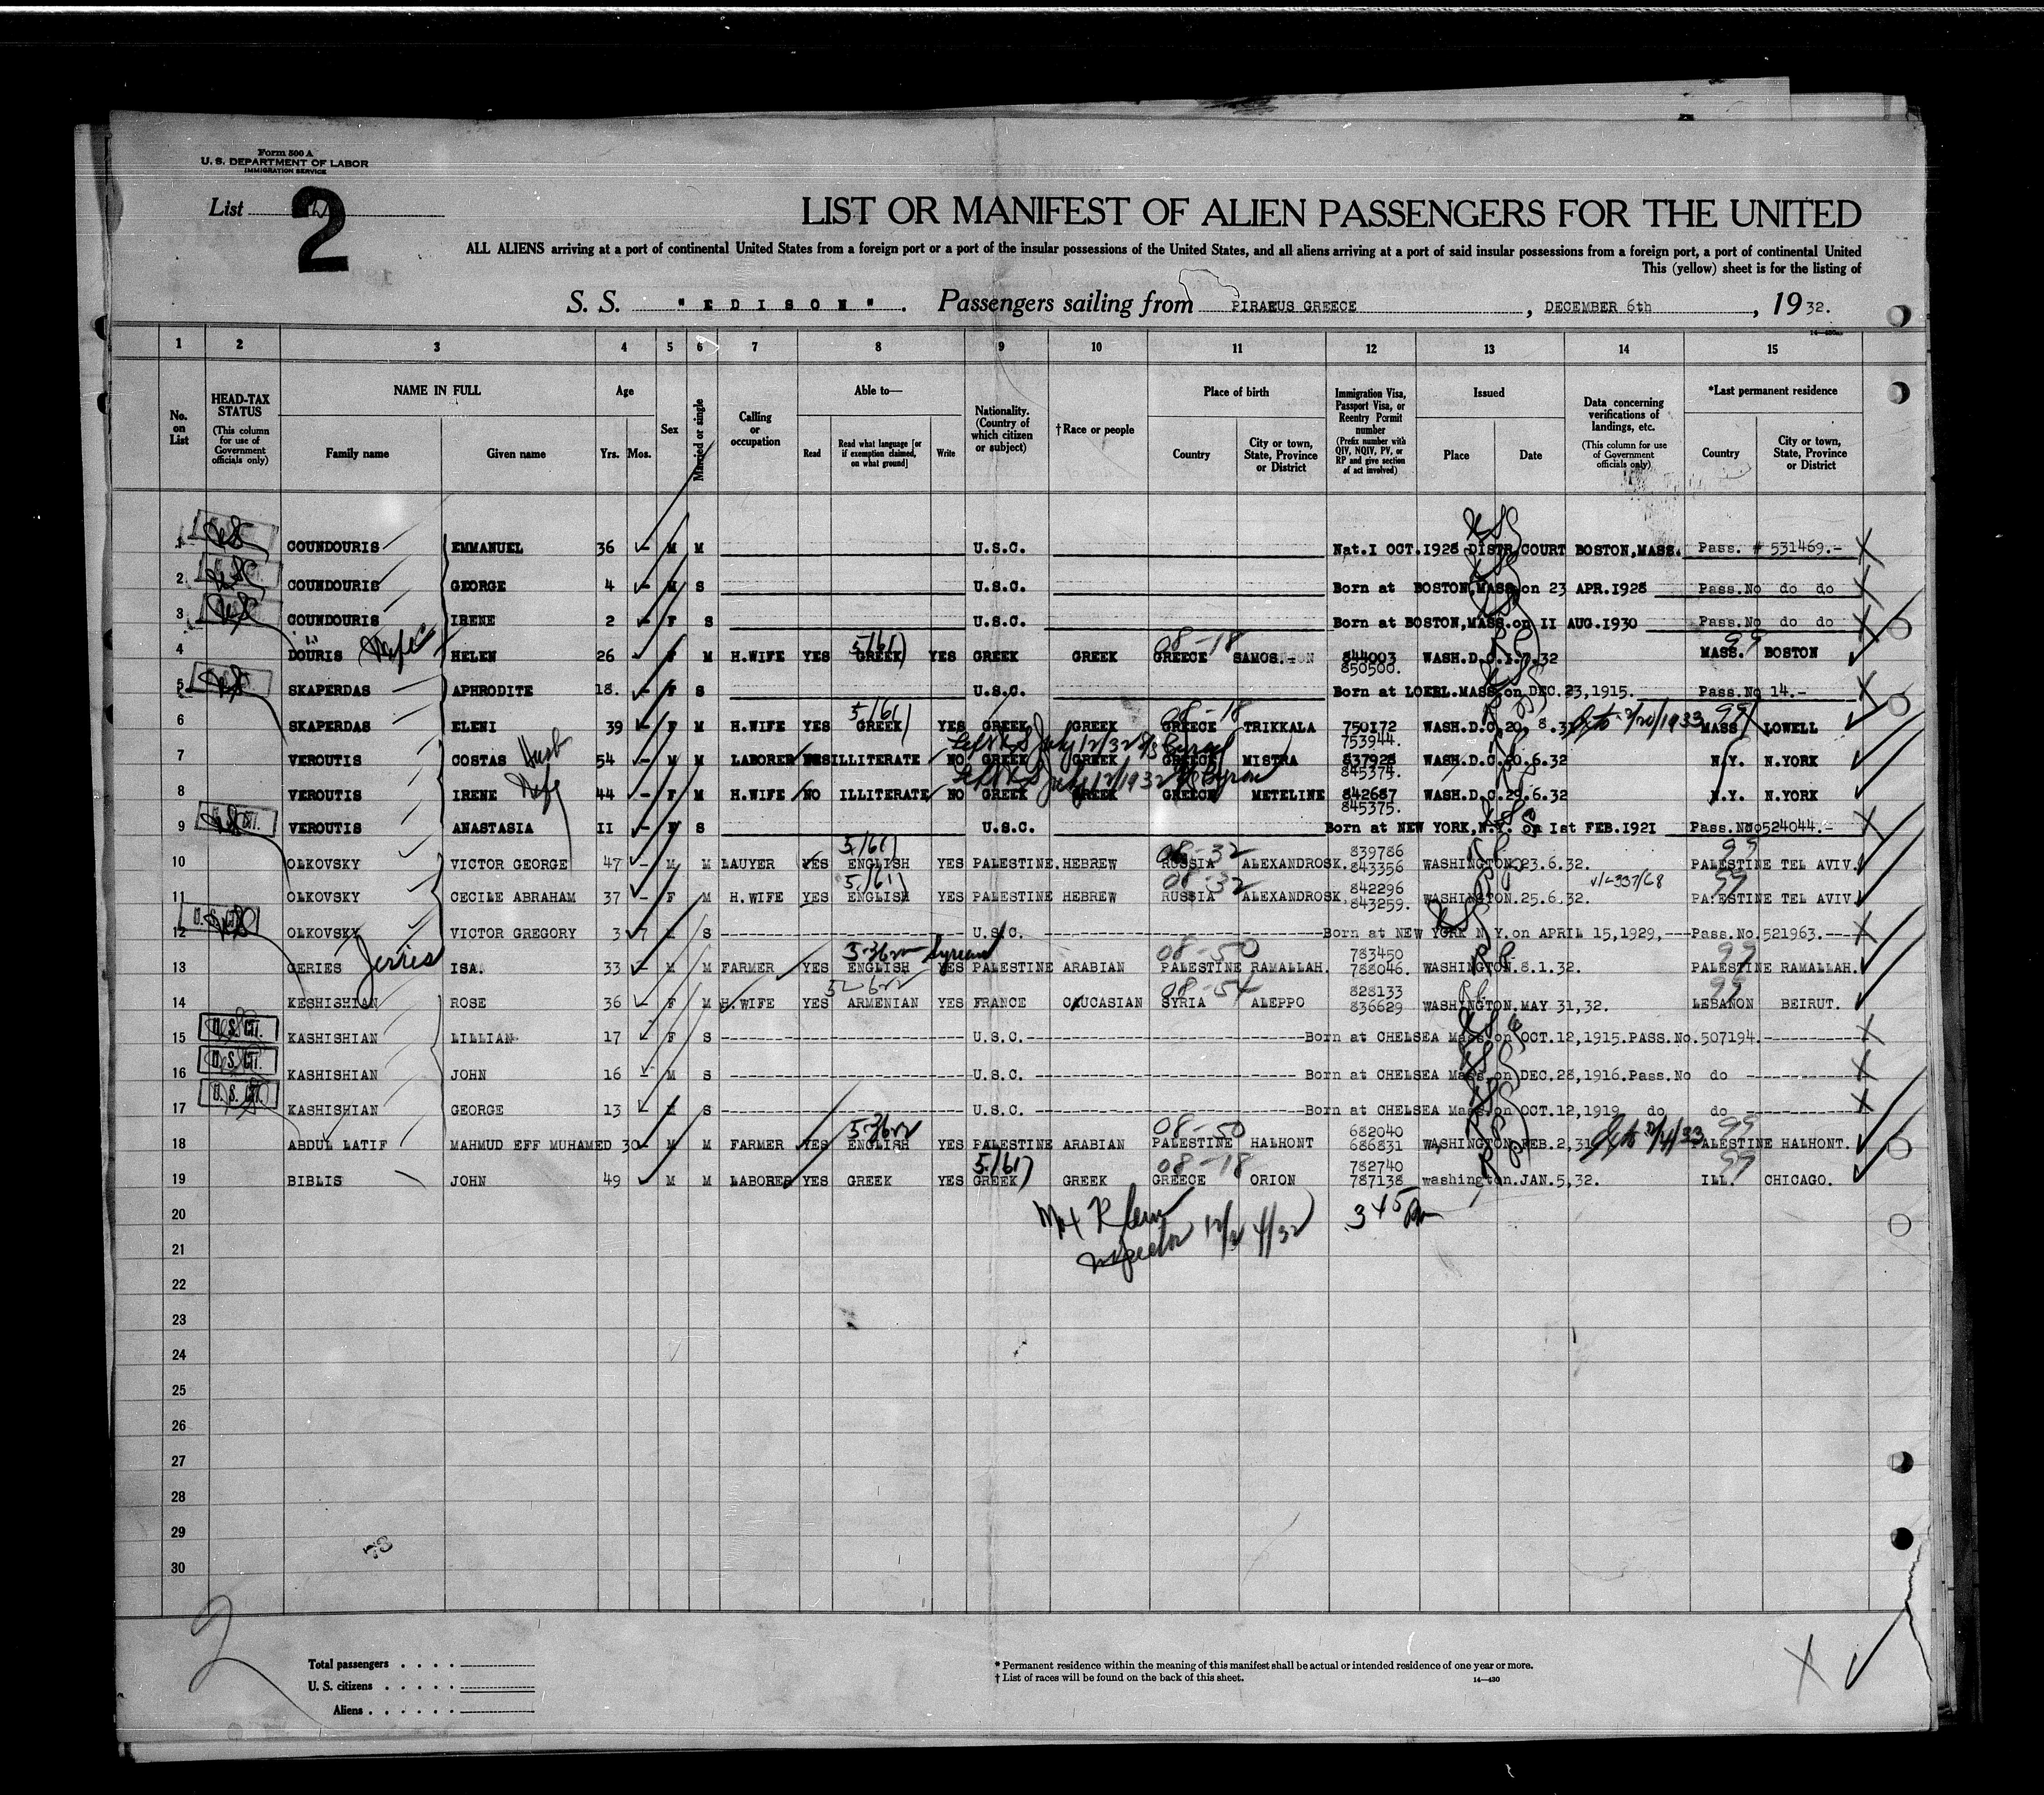 Form 500 A
U. S. DEPARTMENT OF LABOR
IMMIGRATION SERVICE
List 2
LIST OR MANIFEST OF ALIEN PASSENGERS FOR THE UNITED
ALL ALIENS arriving at a port of continental United States from a foreign port or a port of the insular possessions of the United States, and all aliens arriving at a port of said insular possessions from a foreign port, a port of continental United
This (yellow) sheet is for the listing of
S. S. "EDISON". Passengers sailing from PIRAEUS GREECE, DECEMBER 6th, 1932.
1 2 3 4 5 6 7 8 9 10 11 12 13 14 15
No. on List
HEAD-TAX STATUS (This column for use of Government officials only)
NAME IN FULL Family name Given name
Age Yrs. Mos.
Sex
Married or single
Calling or occupation
Able to— Read Read what language [or if exemption claimed, on what ground] Write
Nationality. (Country of which citizen or subject)
†Race or people
Place of birth Country City or town, State, Province or District
Immigration Visa, Passport Visa, or Reentry Permit number (Prefix number with QIV, NQIV, PV, or RP and give section of act involved)
Issued Place Date
Data concerning verifications of landings, etc. (This column for use of Government officials only)
*Last permanent residence Country City or town, State, Province or District
1 COUNDOURIS EMMANUEL 36 - M M U.S.C. Nat.I OCT.1928 DISTR.COURT BOSTON,MASS. Pass. # 531469.-
2 COUNDOURIS GEORGE 4 - M S U.S.C. Born at BOSTON,MASS.on 23 APR.1928 Pass.No do do
3 COUNDOURIS IRENE 2 - F S U.S.C. Born at BOSTON,MASS.on II AUG.1930 Pass.No do do
4 DOURIS Wife HELEN 26 - F M H.WIFE YES GREEK 5/61 YES GREEK GREEK GREECE 08-18 SAMOS. 844003 850500. WASH.D.C.1.7.32 99 MASS. BOSTON
5 SKAPERDAS APHRODITE 18. - F S U.S.C. Born at LOERL.MASS.on DEC.23,1915. Pass.No 14.-
6 SKAPERDAS ELENI 39 - F M H.WIFE YES GREEK 5/61 YES GREEK GREEK GREECE 08-18 TRIKKALA 750172 753944. WASH.D.C.20.8.31 2/20/1933 99 MASS LOWELL
7 VEROUTIS COSTAS Husb 54 - M M LABORER ILLITERATE NO GREEK GREEK GREECE MISTRA 837928 845374. WASH.D.C.20.6.32 N.Y. N.YORK
8 VEROUTIS IRENE Wife 44 - F M H.WIFE NO ILLITERATE NO GREEK GREEK GREECE METELINE 842687 845375. WASH.D.C.29.6.32 N.Y. N.YORK
9 VEROUTIS ANASTASIA II - F S U.S.C. Born at NEW YORK,N.Y. on 1st FEB.1921 Pass.No 524044.-
10 OLKOVSKY VICTOR GEORGE 47 - M M LAUYER YES ENGLISH 5/61 YES PALESTINE.HEBREW RUSSIA 08-32 ALEXANDROSK. 839786 843356 WASHINGTON.23.6.32. 99 PALESTINE TEL AVIV.
11 OLKOVSKY CECILE ABRAHAM 37 - F M H.WIFE YES ENGLISH 5/61 YES PALESTINE HEBREW RUSSIA 08-32 ALEXANDROSK. 842296 843259. WASHINGTON.25.6.32. 99 PALESTINE TEL AVIV.
12 OLKOVSKY VICTOR GREGORY 3 7 M S U.S.C. Born at NEW YORK N.Y.on APRIL 15,1929,---Pass.No.521963.
13 GERIES Jerries ISA. 33 - M M FARMER YES ENGLISH Syrian YES PALESTINE ARABIAN PALESTINE 08-50 RAMALLAH. 783450 788046. WASHINGTON.8.1.32. 99 PALESTINE RAMALLAH.
14 KESHISHIAN ROSE 36 - F M H.WIFE YES ARMENIAN YES FRANCE CAUCASIAN SYRIA 08-54 ALEPPO 828133 836629 WASHINGTON.MAY 31,32. 99 LEBANON BEIRUT.
15 U. S. CIT. KASHISHIAN LILLIAN 17 F S U.S.C. Born at CHELSEA Mass.on OCT.12,1915.PASS.No.507194.
16 U. S. CIT. KASHISHIAN JOHN 16 - M S U.S.C. Born at CHELSEA Mass.on DEC.28,1916.Pass.No do
17 U. S. CIT. KASHISHIAN GEORGE 13 M S U.S.C. Born at CHELSEA Mass.on OCT.12,1919 do do
18 ABDUL LATIF MAHMUD EFF MUHAMED 30- M M FARMER YES ENGLISH YES PALESTINE ARABIAN PALESTINE 08-50 HALHONT 682040 686831 WASHINGTON.FEB.2,31 99 PALESTINE HALHONT.
19 BIBLIS JOHN 49 M M LABORER YES GREEK YES GREEK 5/61 GREEK GREECE 08-18 ORION 782740 787138 washington.JAN.5,32. 99 ILL. CHICAGO.
20 3 45 Pm
21 Inspector
22
23
24
25
26
27
28
29
30
73
2
Total passengers
U. S. citizens
Aliens
* Permanent residence within the meaning of this manifest shall be actual or intended residence of one year or more.
† List of races will be found on the back of this sheet.
14—430